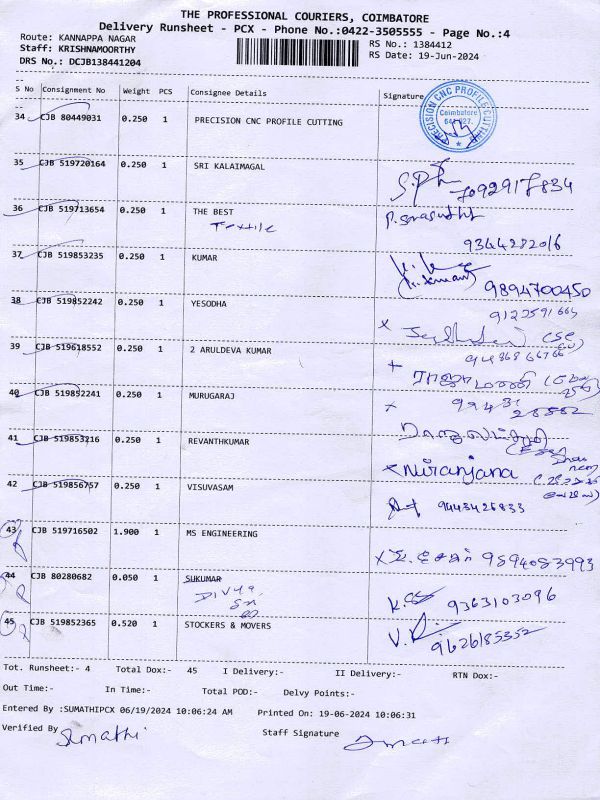 THE PROFESSIONAL COURIERS, COIMBATORE
Delivery Runsheet - PCX - Phone No.:0422-3505555 - Page No.:4
Route: KANNAPPA NAGAR
RS No.: 1384412
Staff: KRISHNAMOORTHY
RS Date: 19-Jun-2024
DRS No.: DCJB138441204
S No Consignment No Weight PCS Consignee Details Signature
PRECISION CNC PROFILE CUTTING
Coimbatore
34 CJB 80449031 0.250 1 PRECISION CNC PROFILE CUTTING
35 CJB 519720164 0.250 1 SRI KALAIMAGAL
7092917834
36 CJB 519713654 0.250 1 THE BEST
Textile
9344282016
37 CJB 519853235 0.250 1 KUMAR
9894700450
38 CJB 519852242 0.250 1 YESODHA
39 CJB 519618552 0.250 1 2 ARULDEVA KUMAR
40 CJB 519852241 0.250 1 MURUGARAJ
41 CJB 519853216 0.250 1 REVANTHKUMAR
Niranjana
42 CJB 519856757 0.250 1 VISUVASAM
9443426833
43 CJB 519716502 1.900 1 MS ENGINEERING
9894083993
44 CJB 80280682 0.050 1 SUKUMAR
DIVYA
9363103096
45 CJB 519852365 0.520 1 STOCKERS & MOVERS
9626185352
Tot. Runsheet:- 4 Total Dox:- 45 I Delivery:- II Delivery:- RTN Dox:-
Out Time:- In Time:- Total POD:- Delvy Points:-
Entered By :SUMATHIPCX 06/19/2024 10:06:24 AM Printed On: 19-06-2024 10:06:31
Verified By Sumathi Staff Signature